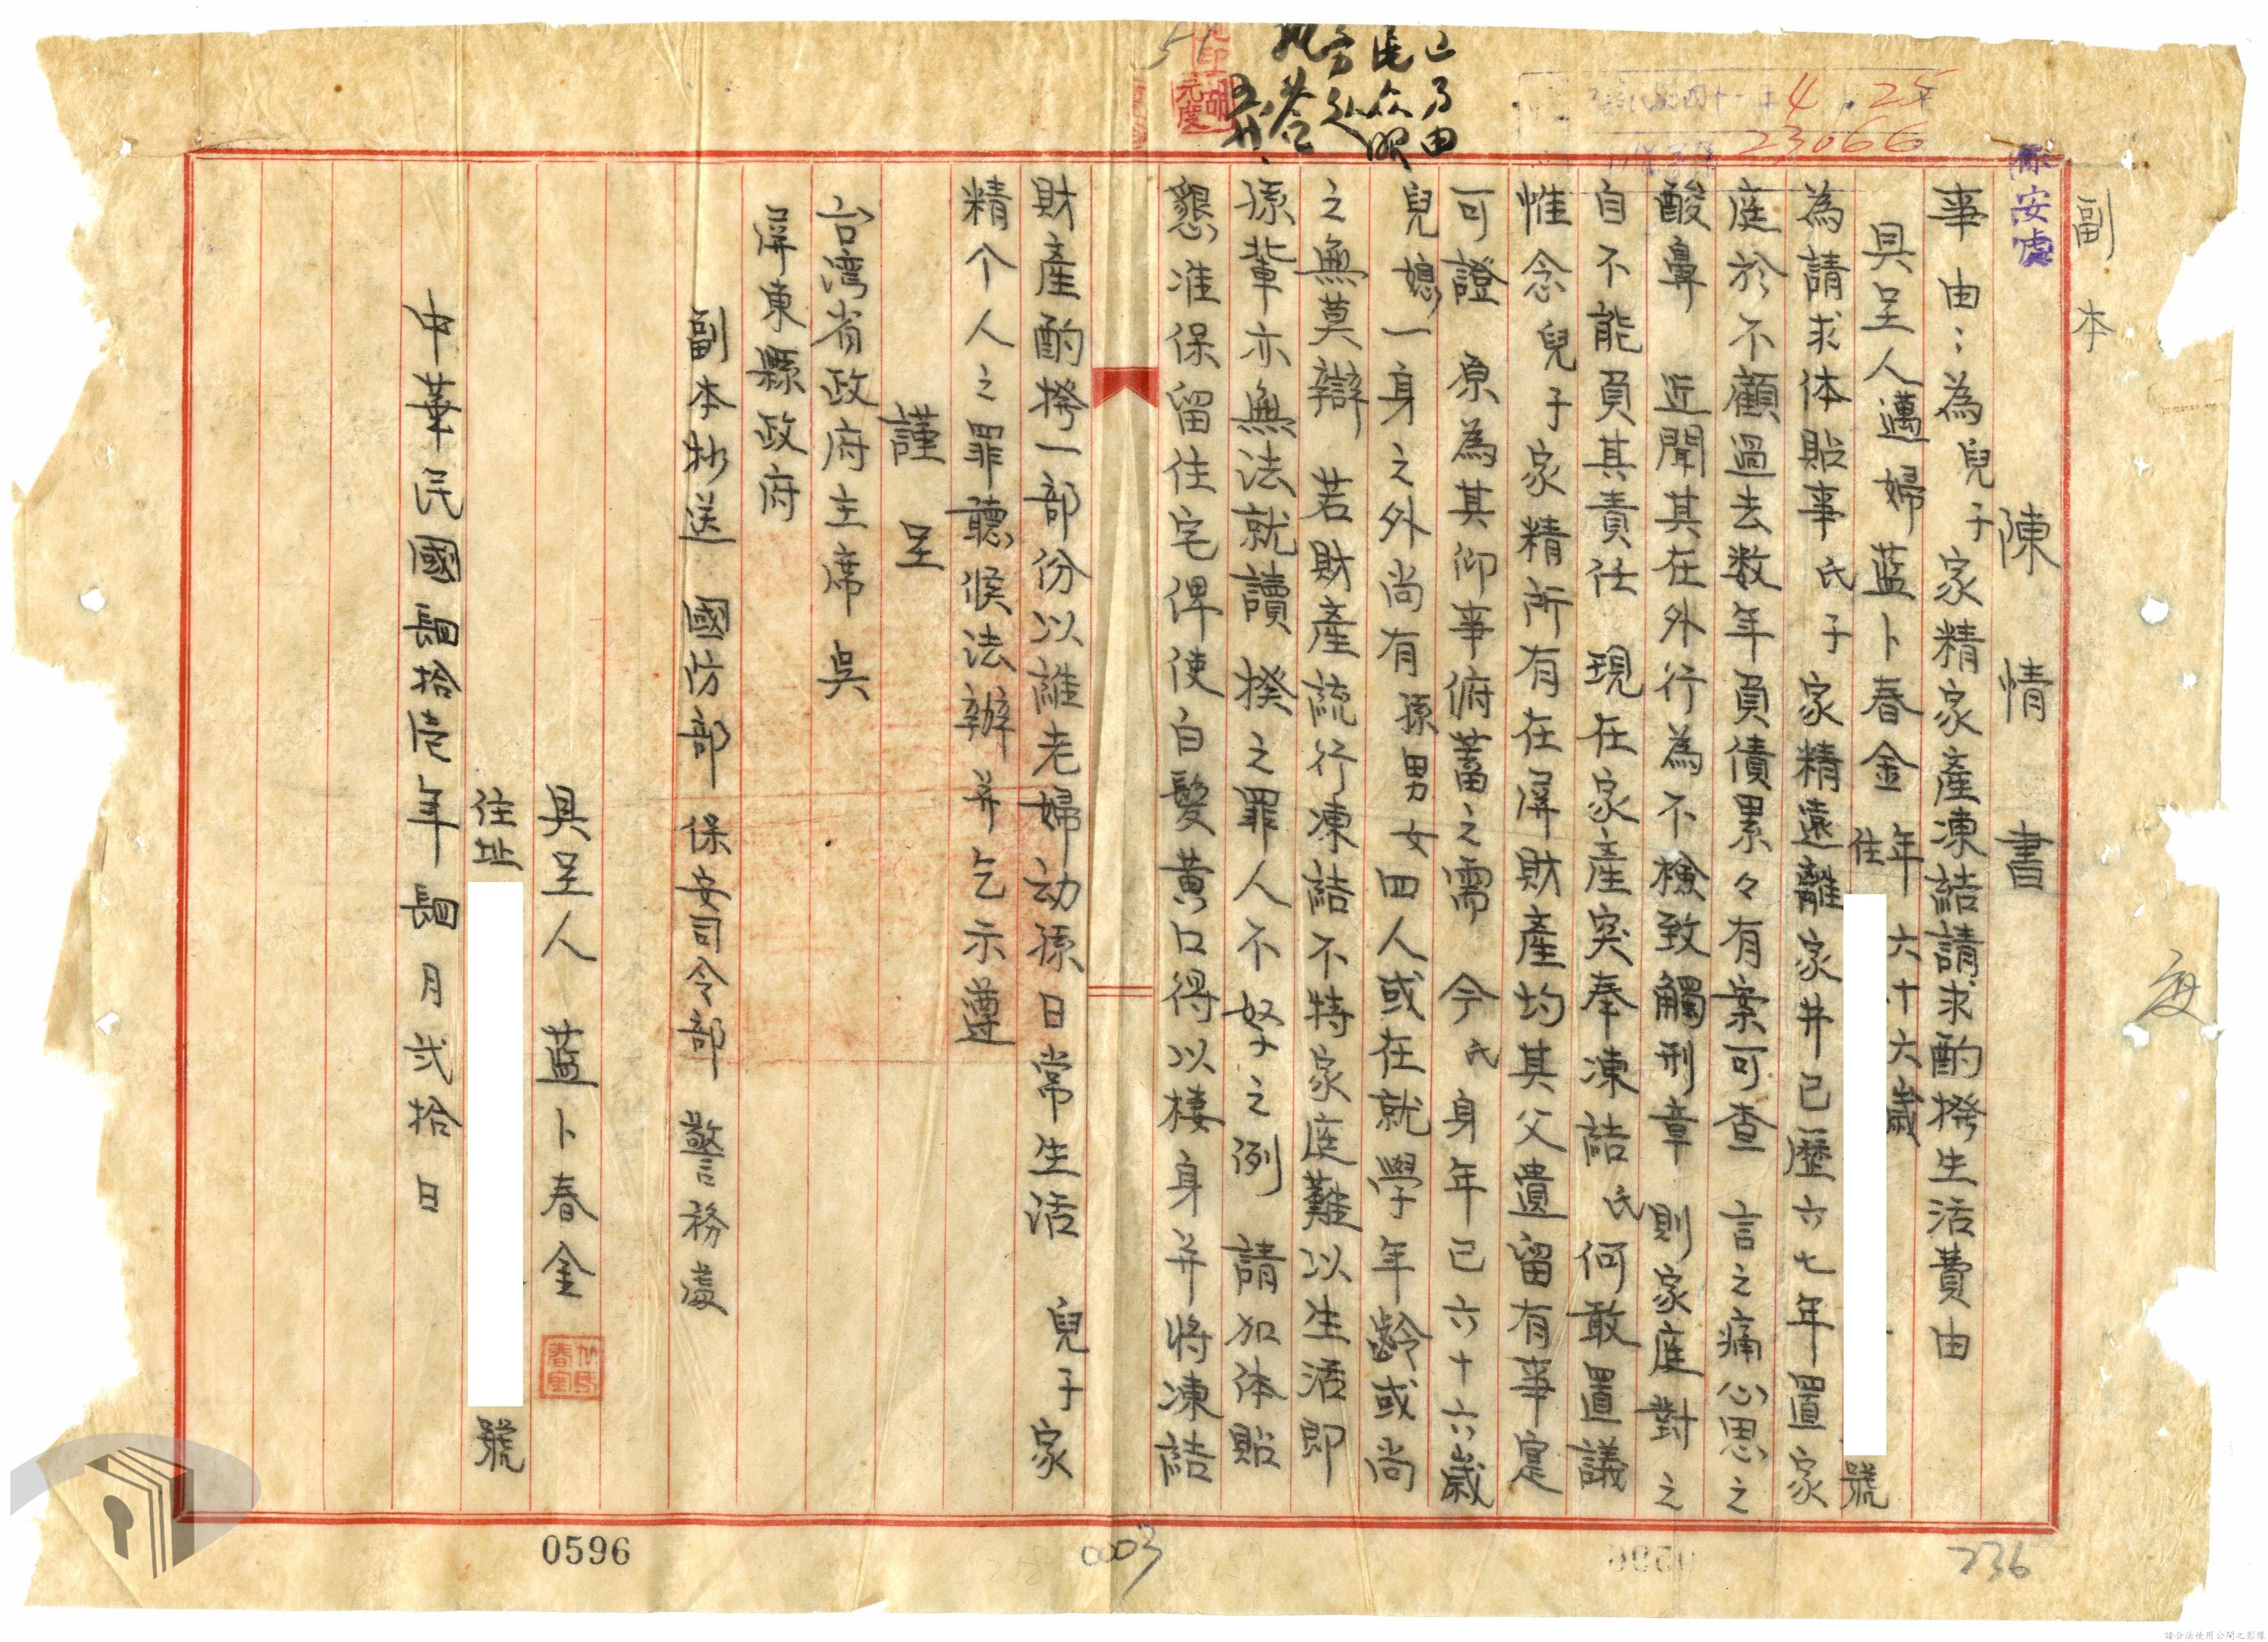 副本
保安處
4 25
23066
陳情書
事由：為兒子家精家產凍詰請求酌撥生活費由
具呈人邁婦藍卜春金年六十六歲
住 號
為請求体貼事氏子家精遠離家井已歷六七年置家
庭於不顧過去数年負債累々有案可查 言之痛心思之
酸鼻 近聞其在外行為不檢致觸刑章 則家庭對之
自不能負其責任 現在家產突奉凍詰氏何敢置議
惟念兒子家精所有在屏財產均其父遺留有事寔
可證 原為其仰事俯蓄之需 今氏身年已六十六歲
兒媳一身之外尚有孫男女四人或在就學年齡或尚
之無莫辯 若財產疏行凍詰不特家庭難以生活即
孫輩亦無法就讀 揆之罪人不孥之例 請加体貼
懇准保留住宅俾使白髮黃口得以棲身并將凍詰
財產酌撥一部份以維老婦幼孫日常生活 兒子家
精个人之罪聽候法辦并乞示遵
謹呈
台湾省政府主席吳
屏東縣政府
副本抄送 國防部保安司令部 警務處
具呈人 藍卜春金
住址 號
中華民國肆拾壹年肆月弍拾日
0596
0003
236
請合法使用公開之影像